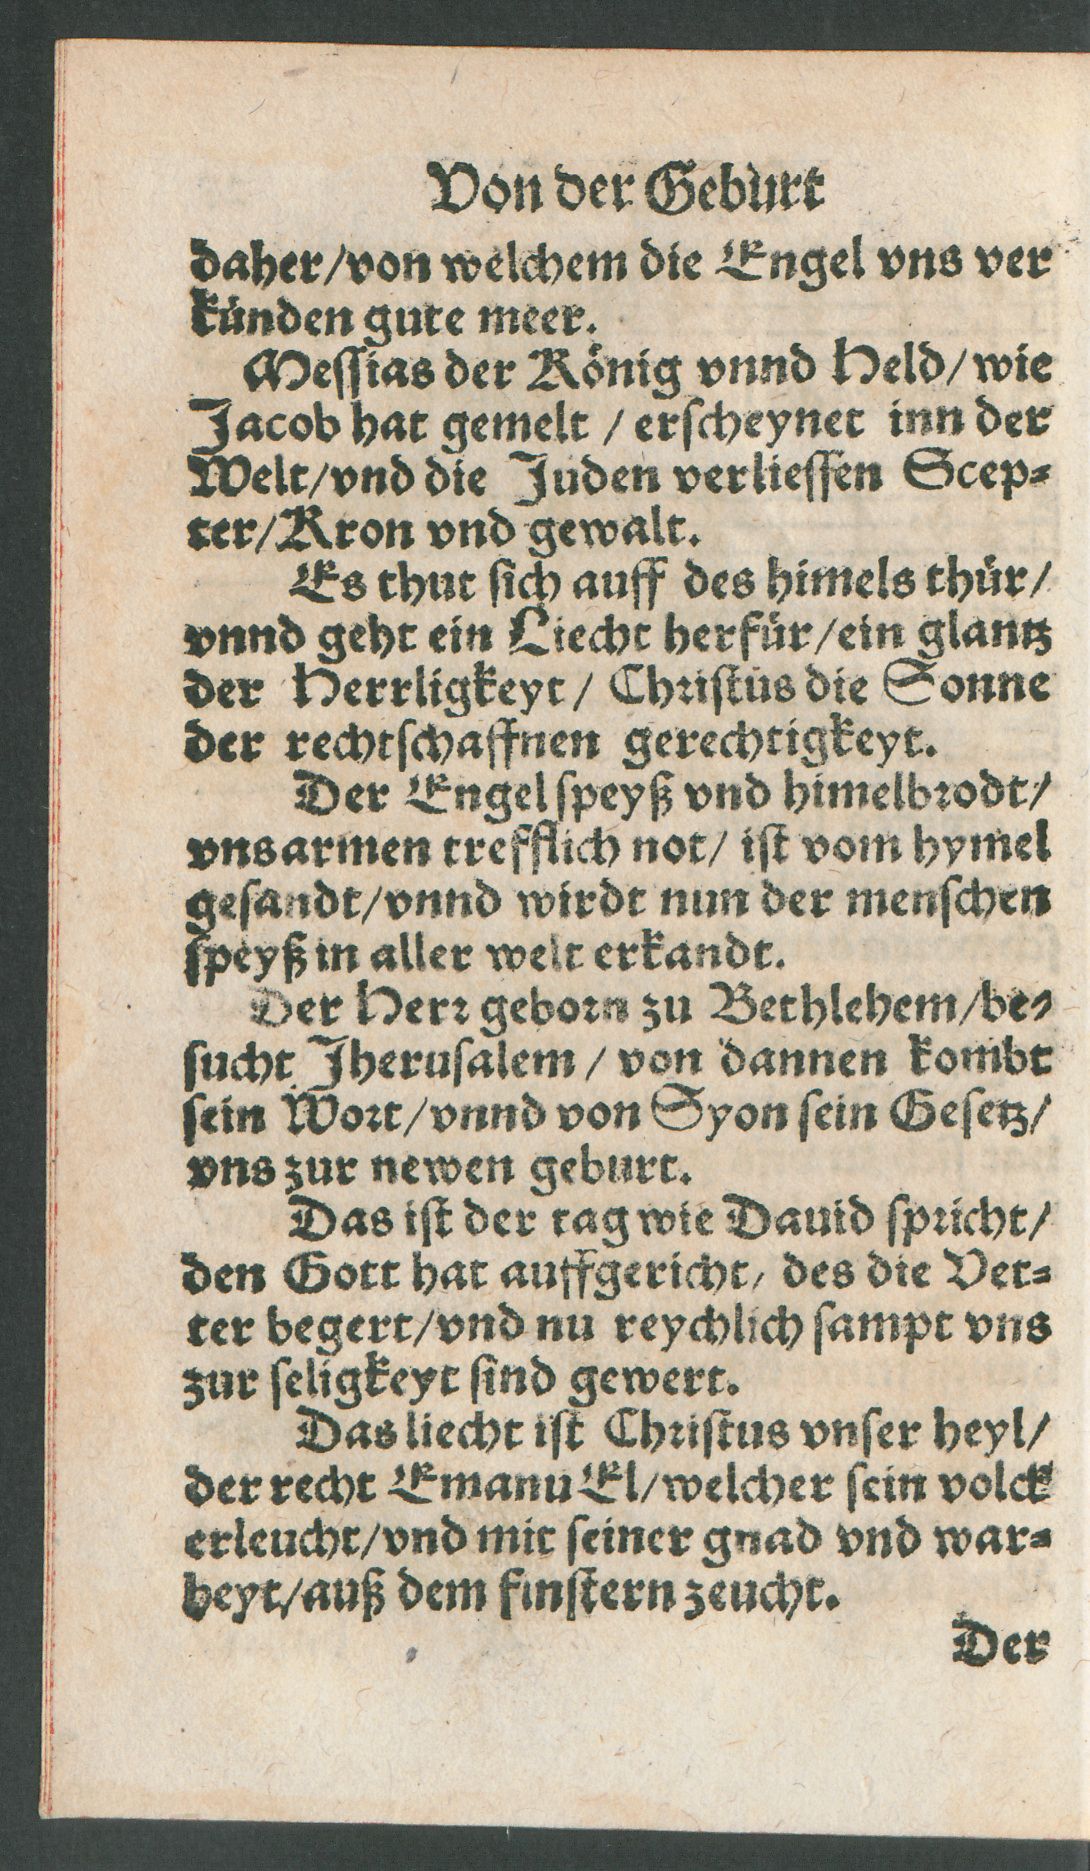 Von der Geburt
daher/von welchem die Engel vns ver
künden gute meer.
Messias der König vnnd Held/wie
Jacob hat gemelt / erscheynet inn der
Welt/vnd die Juden verliessen Scep-
ter/Kron vnd gewalt.
Es thut sich auff des himels thür/
vnnd geht ein Liecht herfür/ein glantz
der Herrligkeyt/ Christus die Sonne
der rechtschaffnen gerechtigkeyt.
Der Engel speyß vnd himelbrodt/
vns armen trefflich not/ ist vom hymel
gesandt/vnnd wirdt nun der menschen
speyß in aller welt erkandt.
Der Herr geborn zu Bethlehem/be-
sucht Jherusalem / von dannen kombt
sein Wort/vnnd von Syon sein Gesetz/
vns zur newen geburt.
Das ist der tag wie Dauid spricht/
den Gott hat auffgericht, des die Vet-
ter begert/vnd nu reychlich sampt vns
zur seligkeyt sind gewert.
Das liecht ist Christus vnser heyl/
der recht EmanuEl/welcher sein volck
erleucht/vnd mit seiner gnad vnd war-
heyt/auß dem finstern zeucht.
Der